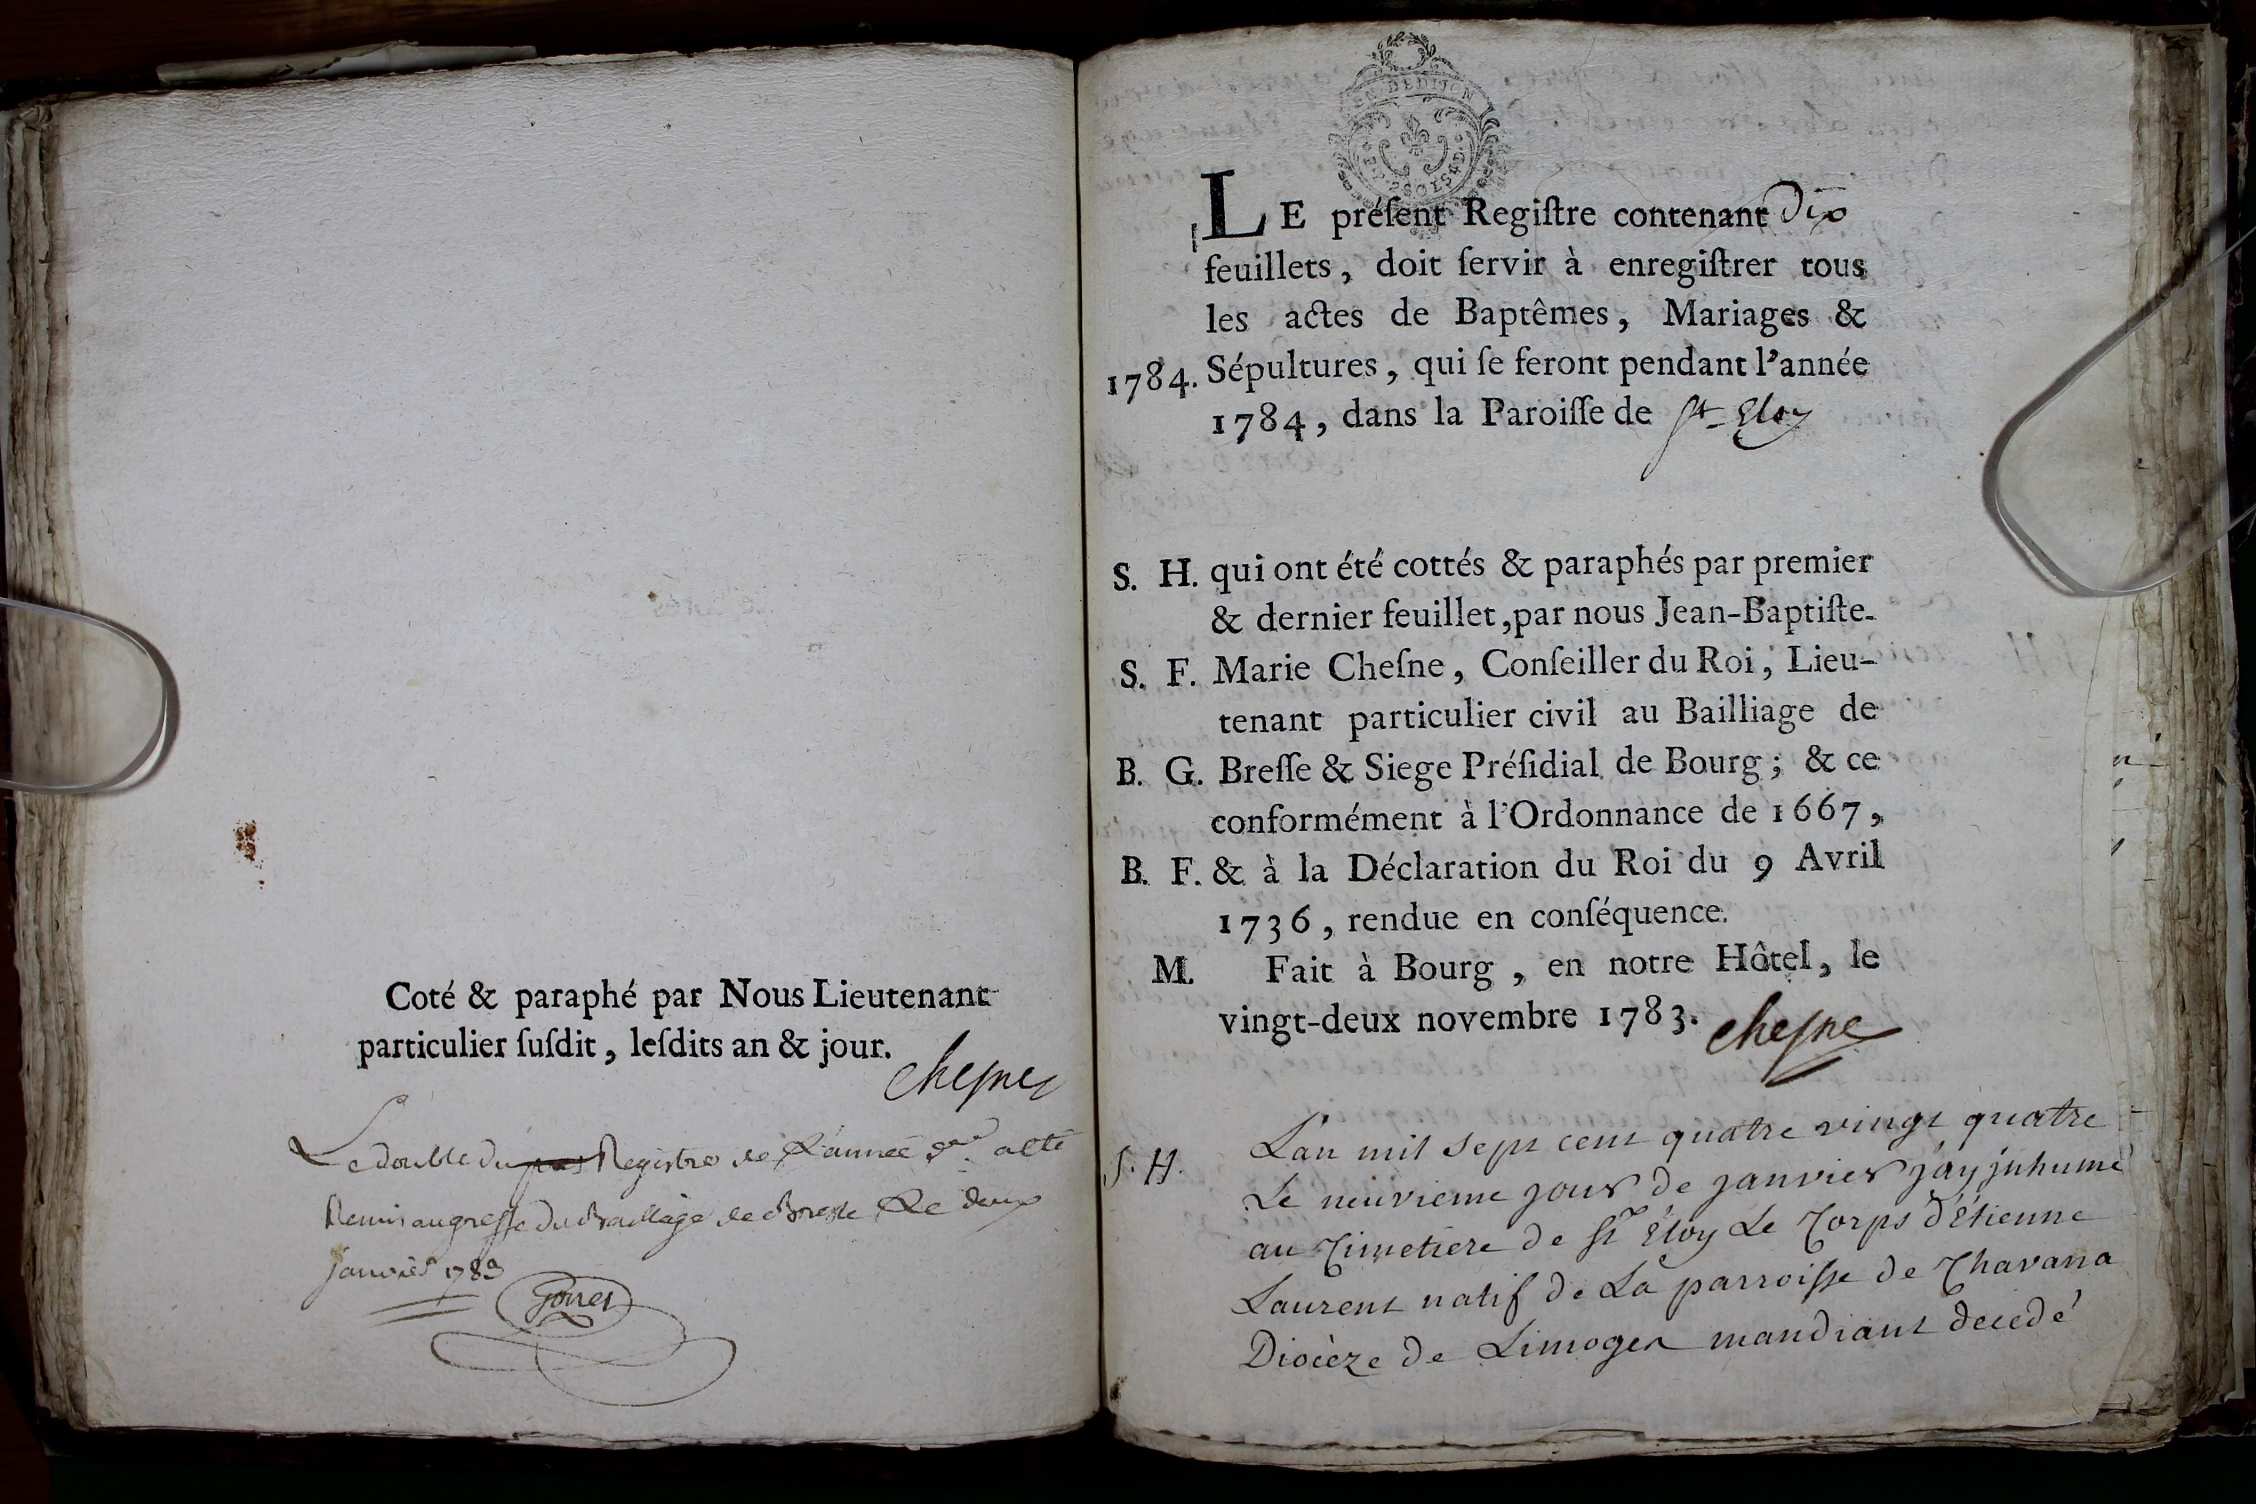 Coté & paraphé par Nous Lieutenant
particulier ſuſdit, leſdits an & jour.
Cheſne
Le double du Registre de L'année der a été
Remis au greffe du Bailliage de Bresse Le deux
janvier 1783
LE préſent Regiſtre contenant dix
feuillets, doit ſervir à enregiſtrer tous
les actes de Baptêmes, Mariages &
1784. Sépultures, qui ſe feront pendant l'année
1784, dans la Paroiſſe de St Eloy
S. H. qui ont été cottés & paraphés par premier
& dernier feuillet, par nous Jean-Baptiſte-
S. F. Marie Cheſne, Conſeiller du Roi, Lieu-
tenant particulier civil au Bailliage de
B. G. Breſſe & Siege Préſidial de Bourg; & ce
conformément à l'Ordonnance de 1667,
B. F. & à la Déclaration du Roi du 9 Avril
1736, rendue en conſéquence.
M. Fait à Bourg, en notre Hôtel, le
vingt-deux novembre 1783. Cheſne
S. H. L'an mil sept cent quatre vingt quatre
Le neuvieme jour de janvier j'ay jnhumé
au Cimetiere de St Éloy Le Corps d'Étienne
Laurent natif de La parroisse de Chavana
Diocèze de Limoges mandiant decedé